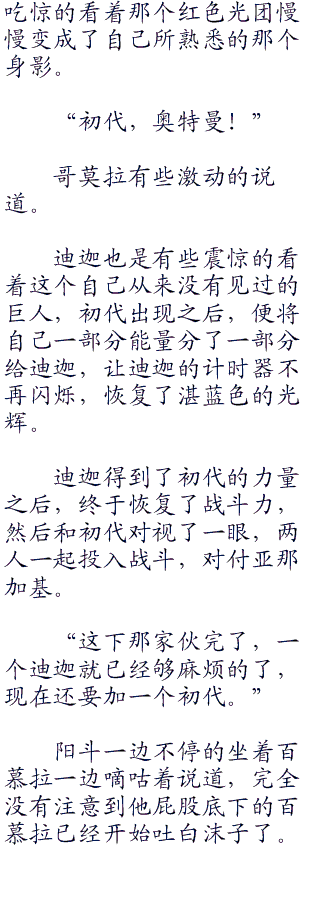 吃惊的看着那个红色光团慢
慢变成了自己所熟悉的那个
身影。
“初代，奥特曼！”
哥莫拉有些激动的说
道。
迪迦也是有些震惊的看
着这个自己从来没有见过的
巨人，初代出现之后，便将
自己一部分能量分了一部分
给迪迦，让迪迦的计时器不
再闪烁，恢复了湛蓝色的光
辉。
迪迦得到了初代的力量
之后，终于恢复了战斗力，
然后和初代对视了一眼，两
人一起投入战斗，对付亚那
加基。
“这下那家伙完了，一
个迪迦就已经够麻烦的了，
现在还要加一个初代。”
阳斗一边不停的坐着百
慕拉一边嘀咕着说道，完全
没有注意到他屁股底下的百
慕拉已经开始吐白沫子了。